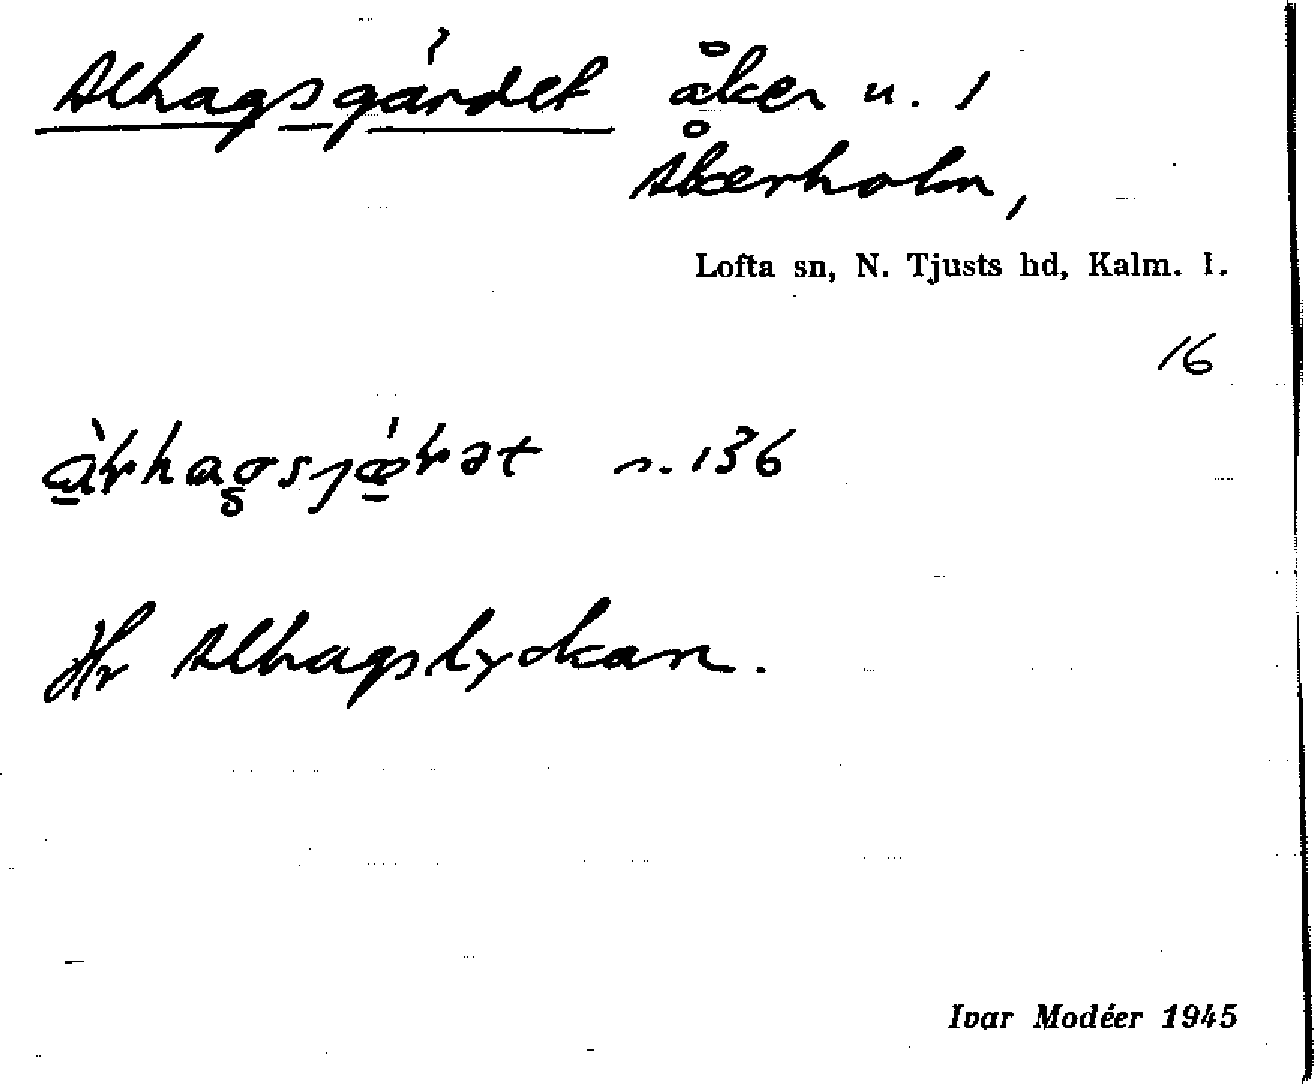 Alhagsgärdet åker u. 1
Åkerholm,
Lofta sn, N. Tjusts hd, Kalm. l.
16
s. 136
Hr Alhagslyckan.
Ivar Modéer 1945